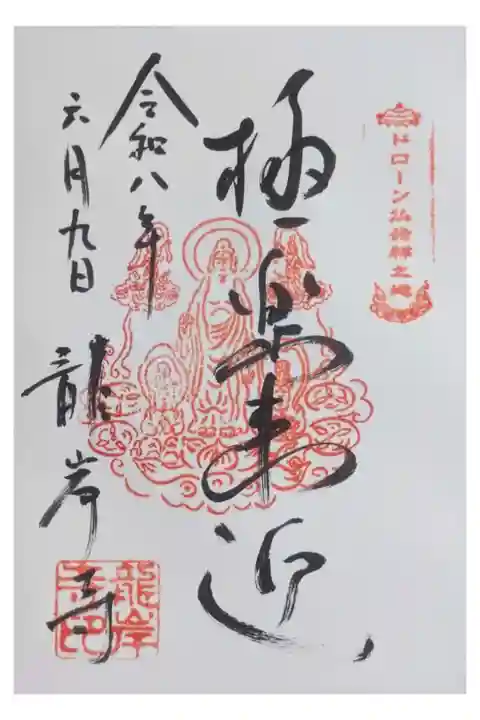 ドローン仏發祥之地
極楽来迎
令和八年
六月九日
龍岸寺
龍岸
寺印